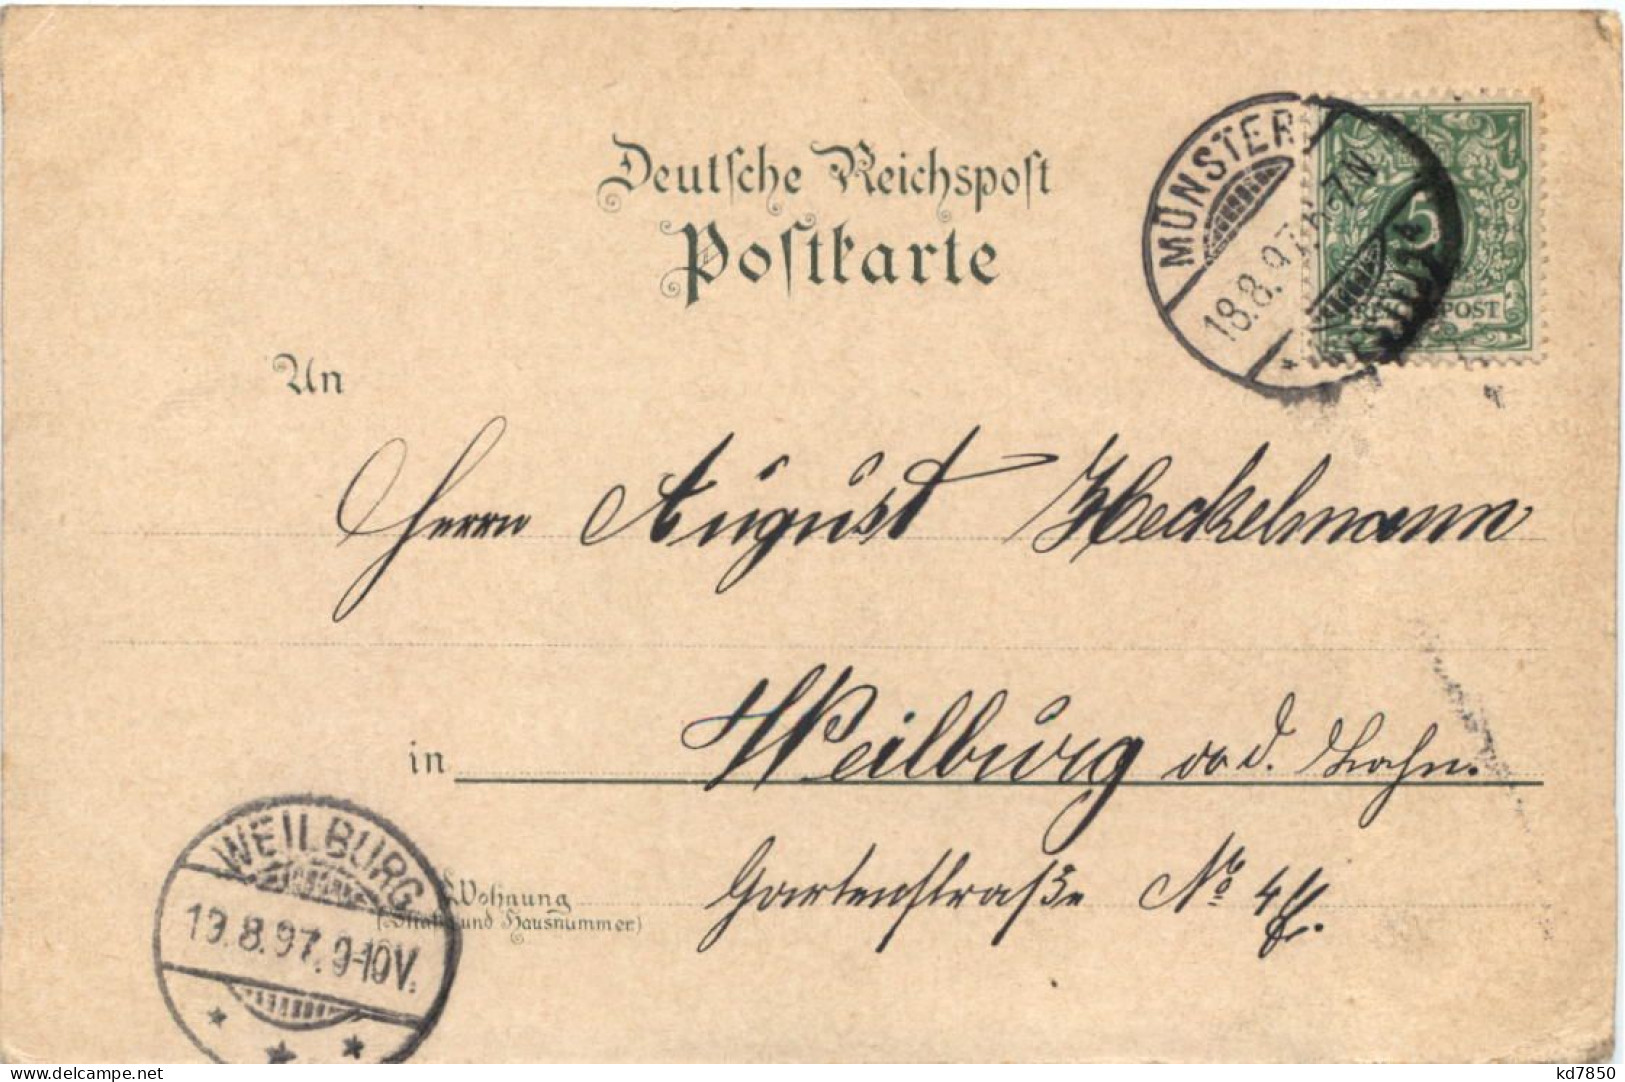 Deutsche Reichspost
Postkarte
MÜNSTER
18.8.97. 6-7N
5
REICHSPOST
An
Herrn August Heckelmann
in Weilburg a. d. Lahn.
Wohnung
(Straße und Hausnummer)
Gartenstraße No 4
WEILBURG
19.8.97. 9-10V.
kd7850